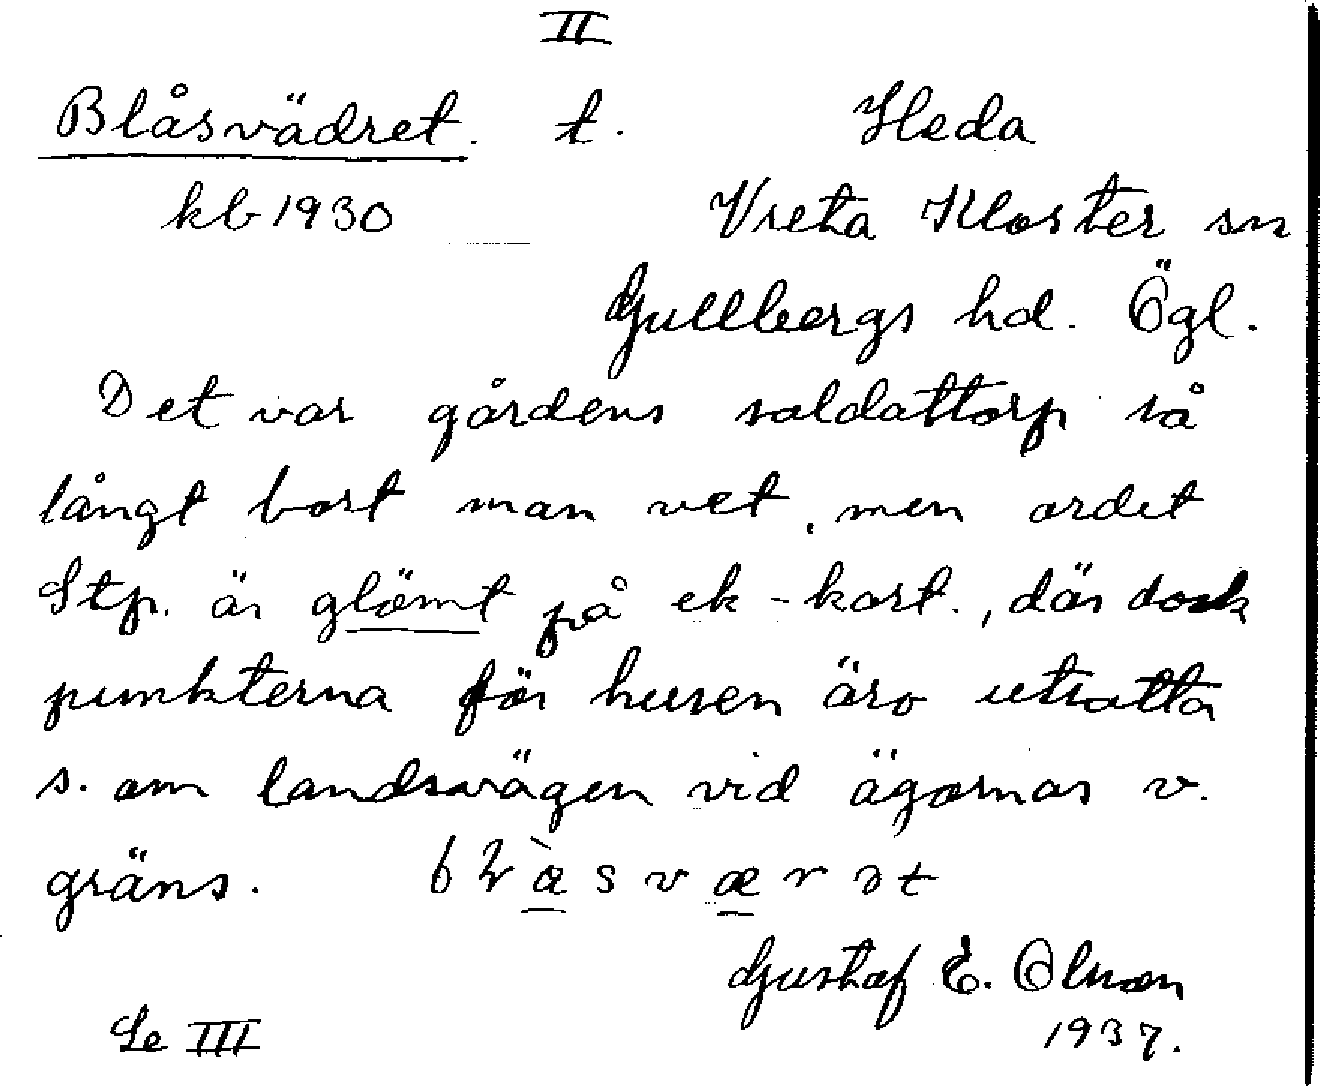 II
Blåsvädret. t. Heda
kb 1930 Vreta Kloster sn
Gullbergs hd. Ögl.
Det var gårdens soldattorp så
långt bort man vet, men ordet
Stp. är glömt på ek-kart., där dock
punkterna för husen äro utsatta
s. om landsvägen vid ägornas v.
gräns.
Gustaf E. Olsson
1937.
Se III